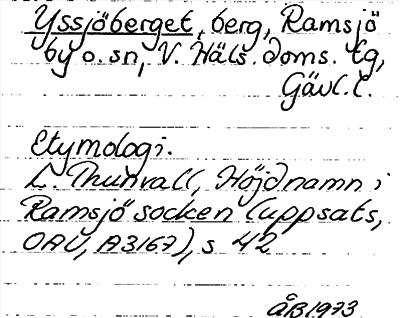 Yssjöberget, berg, Ramsjö
by o. sn, V. Häls. doms. tg,
Gävl. l.
Etymologi.
L. Thunvall, Höjdnamn i
Ramsjö socken (uppsats,
OAU, A3167), s 42
ÅB 1973